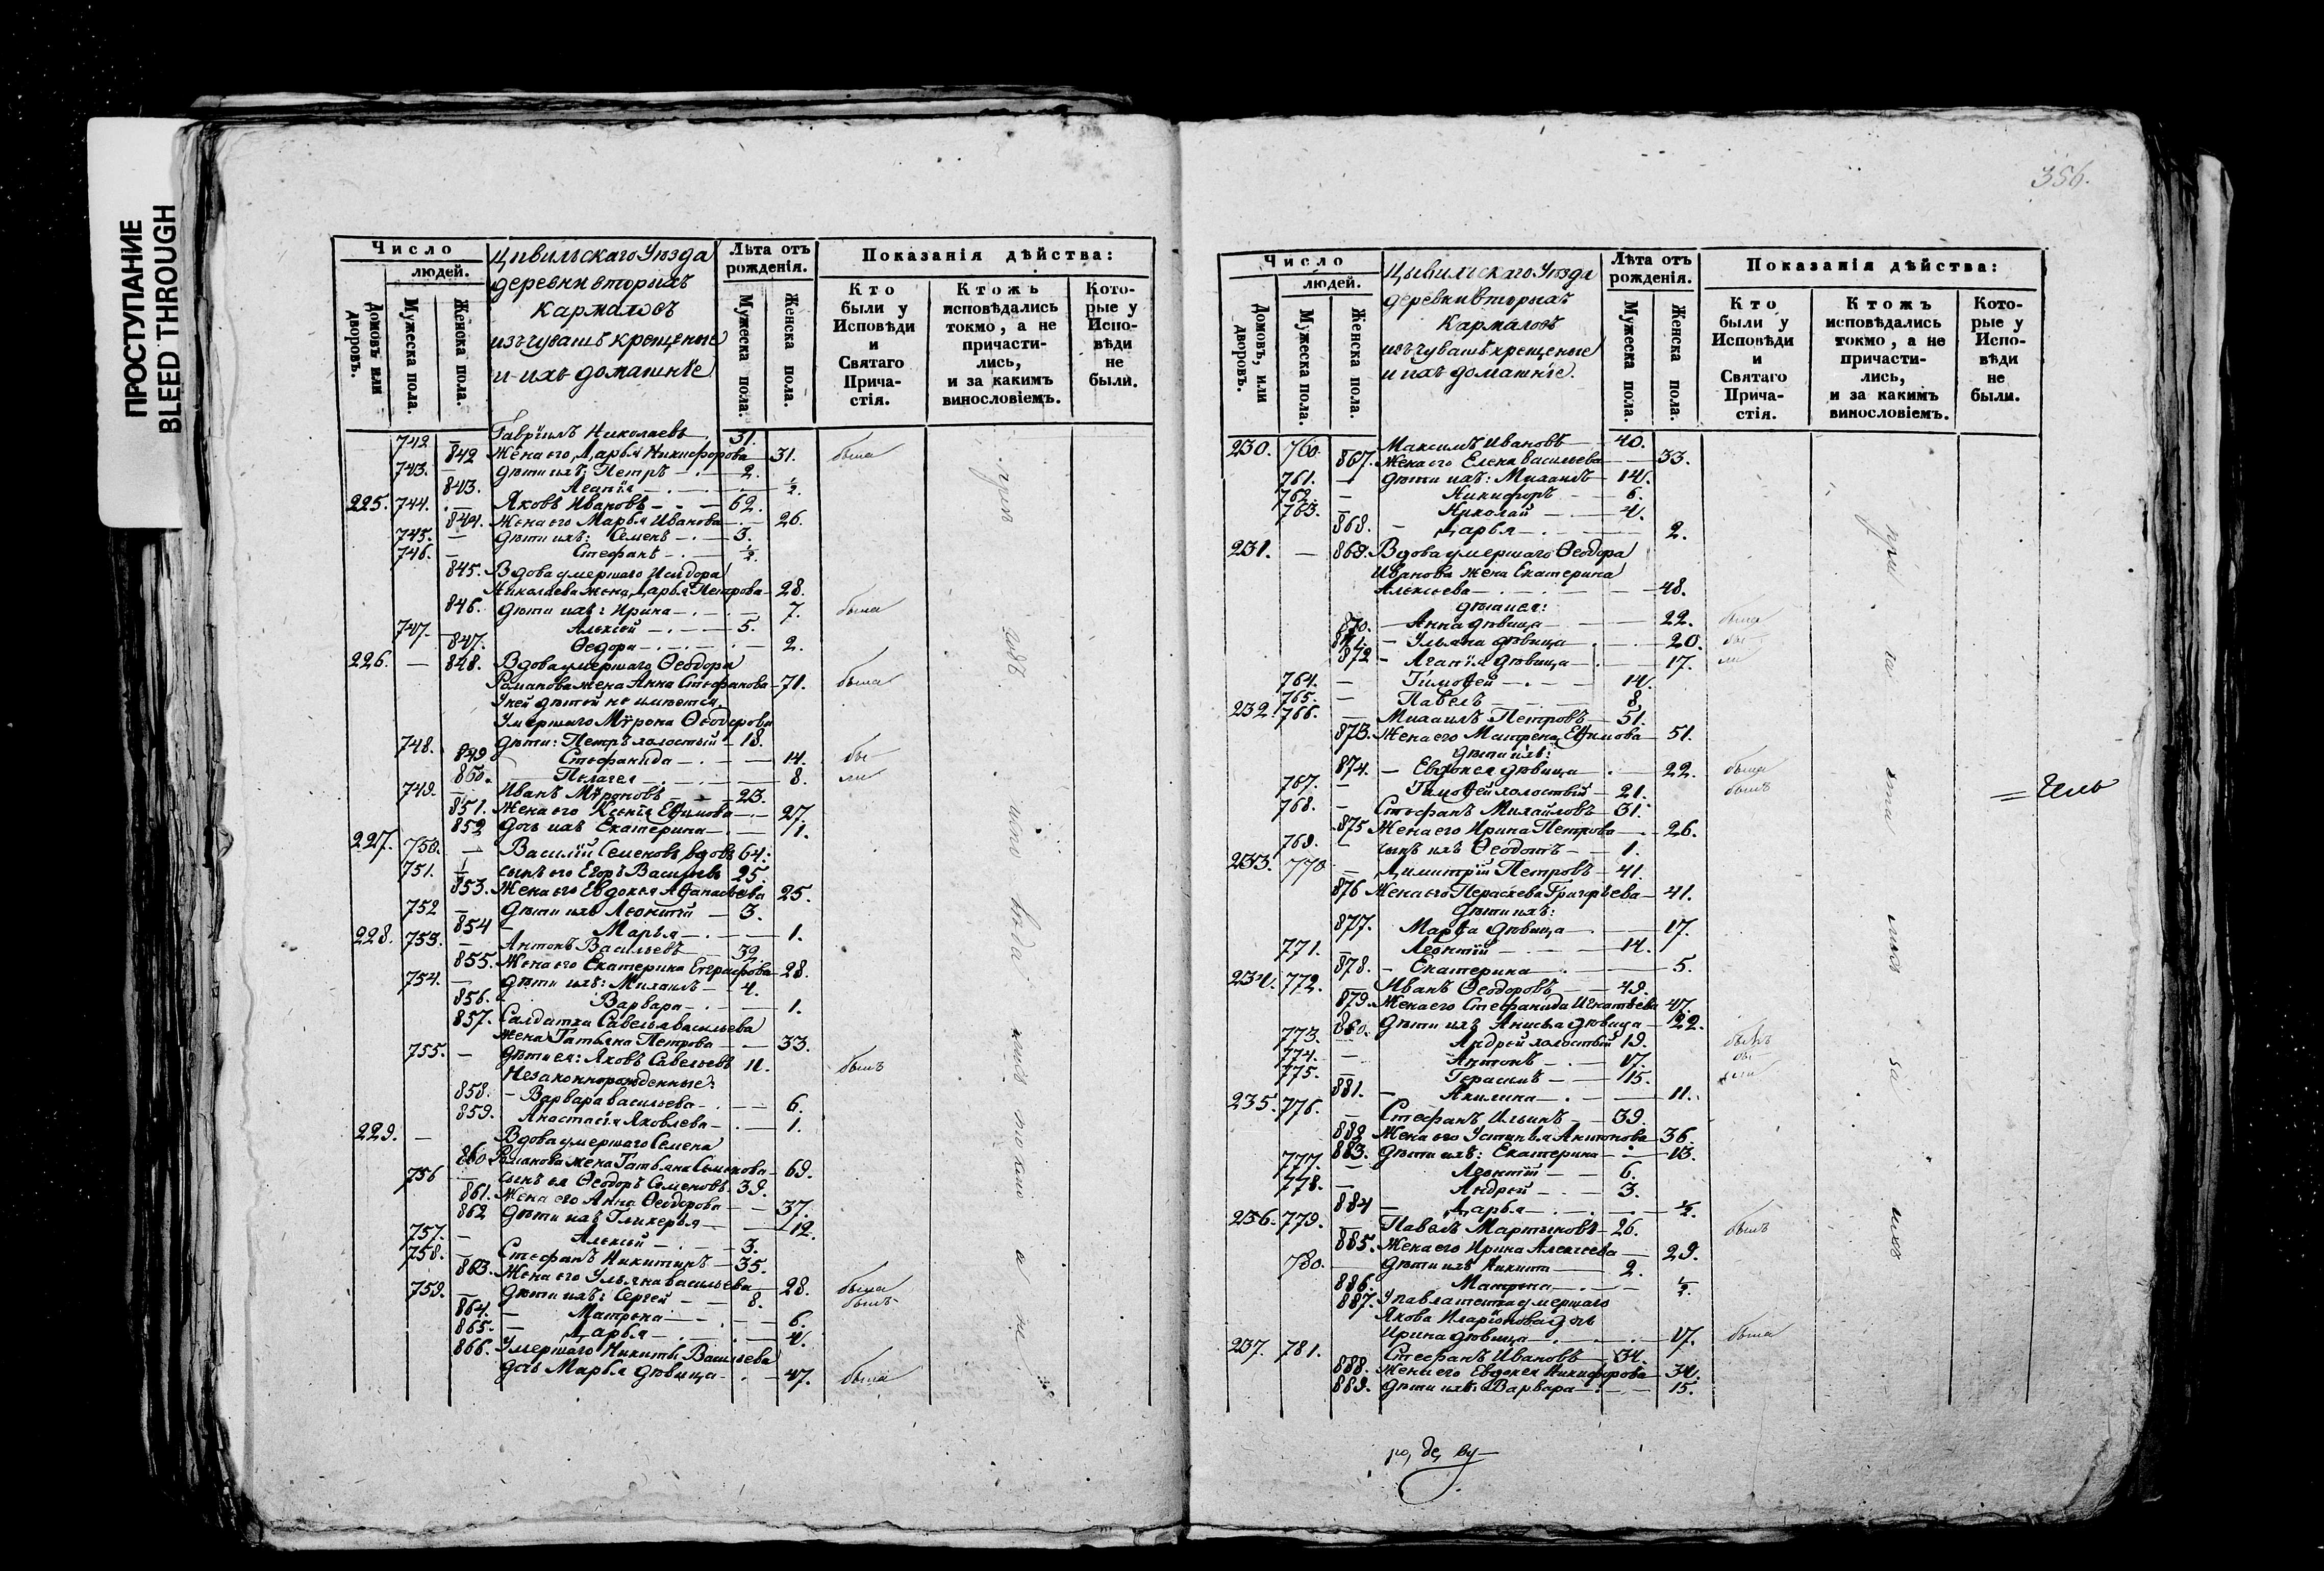 ПРОСТУПАНИЕ
BLEED THROUGH
Число
людей.
Домовъ или дворовъ.
Мужеска пола.
Женска пола.
Цивильскаго Уѣзда
деревни вторыхъ
Кармаловъ
изъ чувашъ крещеные
и ихъ домашнїе
Лѣта отъ рожденія.
Мужеска пола.
Женска пола.
Показанія дѣйства:
Кто были у Исповѣди и Святаго Прича-стія.
Ктожъ исповѣдались токмо, а не причасти-лись, и за какимъ винословіемъ.
Кото-рые у Испо-вѣди не были.
742. Гаврїилъ Николаевъ 31.
842 Жена его Дарья Никифорова 31. была
743. дѣти ихъ: Петръ 2.
843. Агапїя ½.
225. 744. Яковъ Ивановъ 62.
844. Жена его Марья Иванова 26.
745. дѣти ихъ: Семенъ 3.
746. Стефанъ ½.
845. Вдова умершаго Исидора
Николаева жена Дарья Петрова 28.
846. дѣти ихъ: Ирина 7. была
747. Алексѣй 5.
847. Ѳедора 2.
226. 848. Вдова умершаго Ѳеодора
Романова жена Анна Стефанова 71. была
У ней дѣтей не имѣется
Умершаго Мѵрона Ѳеодорова
748. дѣти: Петръ холостый 18.
849 Стефанида 14. бы-
850. Пелагея 8. ли
749. Иванъ Мѵроновъ 23.
851. Жена его Ксенїя Ефимова 27.
852 дочь ихъ Екатерина 1.
227. 750. Василїй Семеновъ вдовъ 64.
751. сынъ его Егоръ Васильевъ 25.
853. Жена его Евдокїя Аѳанасьева 25.
752 дѣти ихъ Леонтїй 3.
854 Марья 1.
228. 753. Антонъ Васильевъ 32.
855. Жена его Екатерина Евграфова 28.
754. дѣти ихъ: Михаилъ 4.
856. Варвара 1.
857. Салдатка Савелья Васильева
жена Татьяна Петрова 33.
755. дѣти ея: Яковъ Савельевъ 11. былъ
Незаконнорожденные:
858. Варвара Васильева 6.
859. Анастасїя Яковлева 1.
229. Вдова умершаго Семена
860 Романова жена Татьяна Семенова 69.
756 сынъ ея Ѳеодоръ Семеновъ 39.
861. Жена его Анна Ѳеодорова 37.
862 дѣти ихъ Гликерья 12.
757. Алексѣй 3.
758. Стефанъ Никитинъ 35.
863. Жена его Ульяна Васильева 28. была
759. дѣти ихъ: Сергей 8. былъ
864. Матрена 6.
865. Дарья 4.
866. Умершаго Никиты Васильева
дочь Марья дѣвица 47. была
356.
Число
людей.
Домовъ, или дворовъ.
Мужеска пола.
Женска пола.
Цывильскаго Уѣзда
деревни вторыхъ
Кармаловъ
изъ чувашъ крещеные
и ихъ домашнїе.
Лѣта отъ рожденія.
Мужеска пола.
Женска пола.
Показанія дѣйства:
Кто были у Исповѣди и Святаго Прича-стія.
Ктожъ исповѣдались токмо, а не причасти-лись, и за какимъ винословіемъ.
Кото-рые у Испо-вѣди не были.
230. 760. Максимъ Ивановъ 40.
867. Жена его Елена Васильева 33.
761. дѣти ихъ: Михаилъ 14.
762. Никифоръ 6.
763. Николай 4.
868. Дарья 2.
231. 869. Вдова умершаго Ѳеодора
Иванова жена Екатерина
Алексѣева 48.
дѣти ея:
870. Анна дѣвица 22. была
871. Ульяна дѣвица 20. бы-
872 Агапїя дѣвица 17. ли
764. Тимоѳей 14.
765. Павелъ 8.
232. 766. Михаилъ Петровъ 51.
873. Жена его Матрена Ефимова 51.
дѣти ихъ:
874. Евдокея дѣвица 22. была
767. Тимоѳей холостый 21. былъ
768. Стефанъ Михайловъ 31.
875 Жена его Ирина Петрова 26.
769. сынъ ихъ Ѳеодотъ 1.
233. 770 Димитрїй Петровъ 41.
876 Жена его Параскева Григорьева 41.
дѣти ихъ:
877. Марѳа дѣвица 17.
771. Леонтїй 14.
878. Екатерина 5.
234. 772. Иванъ Ѳеодоровъ 49.
879. Жена его Стефанида Игнатьева 47.
880. дѣти ихъ Анисья дѣвица 22.
773. Андрей холостый 19. былъ
774. Антонъ 17. бы-
775. Герасимъ 15. ли
881. Акилина 11.
235. 776. Стефанъ Ильинъ 39.
882 Жена его Устинья Антонова 36.
883. дѣти ихъ: Екатерина 13.
777. Леонтїй 6.
778. Андрей 3.
884 Дарья ½.
236. 779. Павелъ Мартыновъ 26. былъ
885. Жена его Ирина Алексѣева 29.
780. дѣти ихъ Никита 2.
886. Матрена ½.
887. У павла тетка умершаго
Якова Иларїонова дочь
Ирина дѣвица 17. была
237. 781. Стефанъ Ивановъ 34.
888. Жена его Евдокея Никифорова 34.
889. дѣти ихъ: Варвара 15.